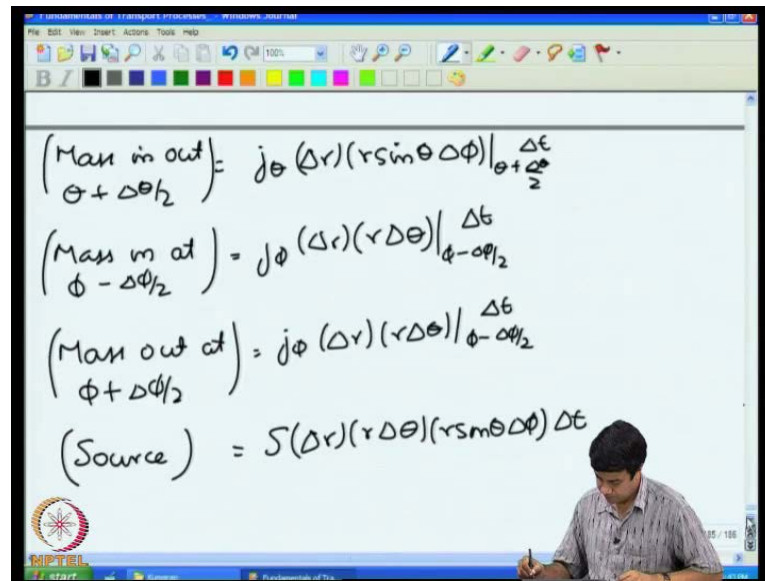 Fundamentals of Transport Processes_ - Windows Journal
File Edit View Insert Actions Tools Help
100%
B I
(Mass in out θ + Δθ/2) = jθ (Δr)(r sinθ Δϕ)|θ + Δθ/2 Δt
(Mass in at ϕ - Δϕ/2) = jϕ (Δr)(rΔθ)|ϕ - Δϕ/2 Δt
(Mass out at ϕ + Δϕ/2) = jϕ (Δr)(rΔθ)|ϕ - Δϕ/2 Δt
(Source) = S(Δr)(rΔθ)(r sinθ Δϕ) Δt
185 / 186
NPTEL
start
Fundamentals of Tra...